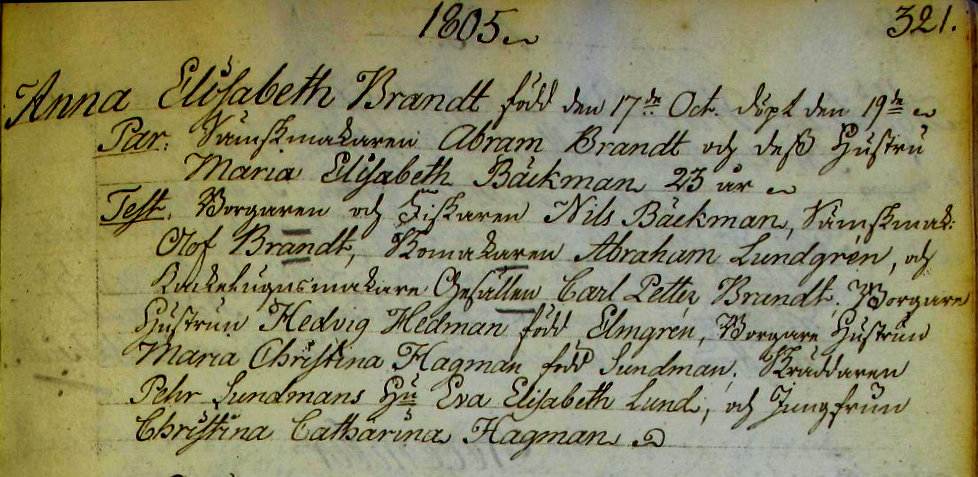 1805.
321.
Anna Elisabeth Brandt född den 17de Oct. döpt den 19de
Par. Sämskmakaren Abram Brandt och dess Hustru
Maria Elisabeth Bäckman 23 år
Test. Borgaren och Fiskaren Nils Bäckman, Sämskmak:
Olof Brandt, Skomakaren Abraham Lundgren, och
Kakelugnsmakare Gesällen Carl Petter Brandt. Borgare
Hustrun Hedvig Hedman född Elmgren, Borgare Hustrun
Maria Christina Hagman född Sundman, Skräddaren
Pehr Sundmans Hu Eva Elisabeth Lund, och Jungfrun
Christina Catharina Hagman